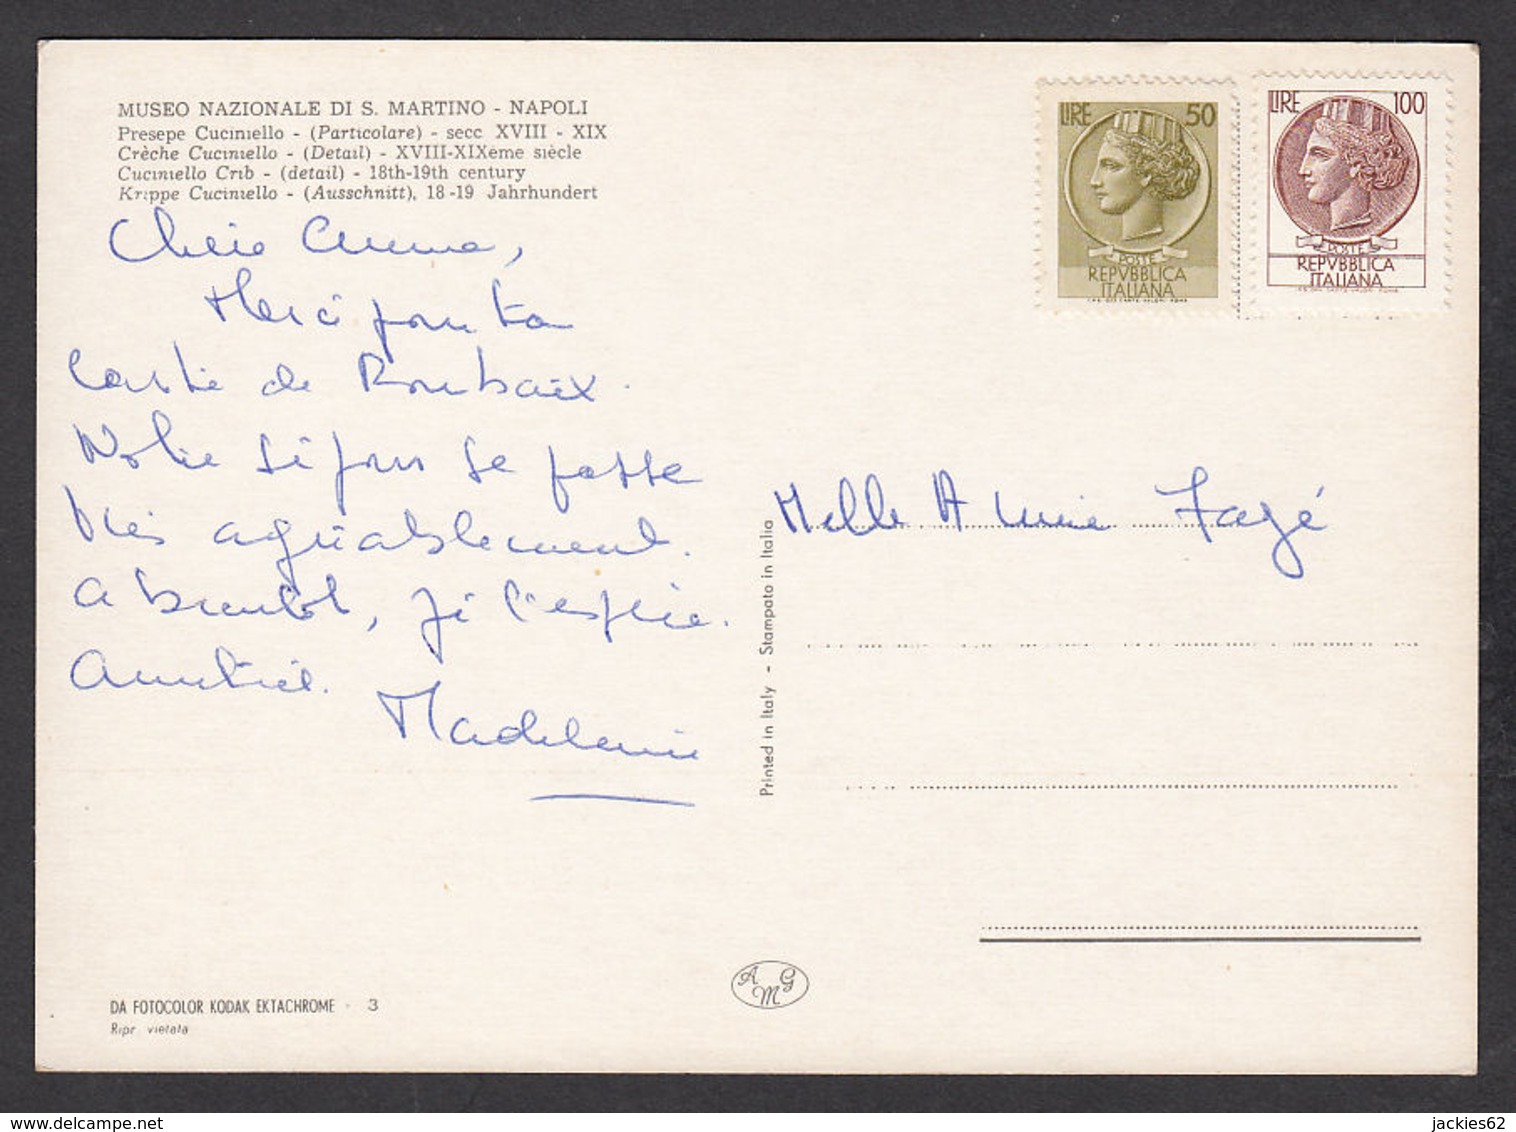 MUSEO NAZIONALE DI S. MARTINO - NAPOLI
Presepe Cuciniello - (Particolare) - secc XVIII - XIX
Crèche Cuciniello - (Détail) - XVIII-XIXème siècle
Cuciniello Crib - (detail) - 18th-19th century
Krippe Cuciniello - (Ausschnitt), 18-19 Jahrhundert
Chère Anne,
Merci pour ta
carte de Roubaix.
Notre séjour se passe
très agréablement.
A bientôt, je l'espère.
Amitiés.
Madeleine
LIRE 50
POSTE
REPVBBLICA
ITALIANA
I.P.S. OFF. CARTE-VALORI - ROMA
LIRE 100
POSTE
REPVBBLICA
ITALIANA
I.P.S. OFF. CARTE-VALORI - ROMA
Melle Annie Fagé
Printed in Italy - Stampato in Italia
A M G
DA FOTOCOLOR KODAK EKTACHROME - 3
Ripr vietata
jackies62